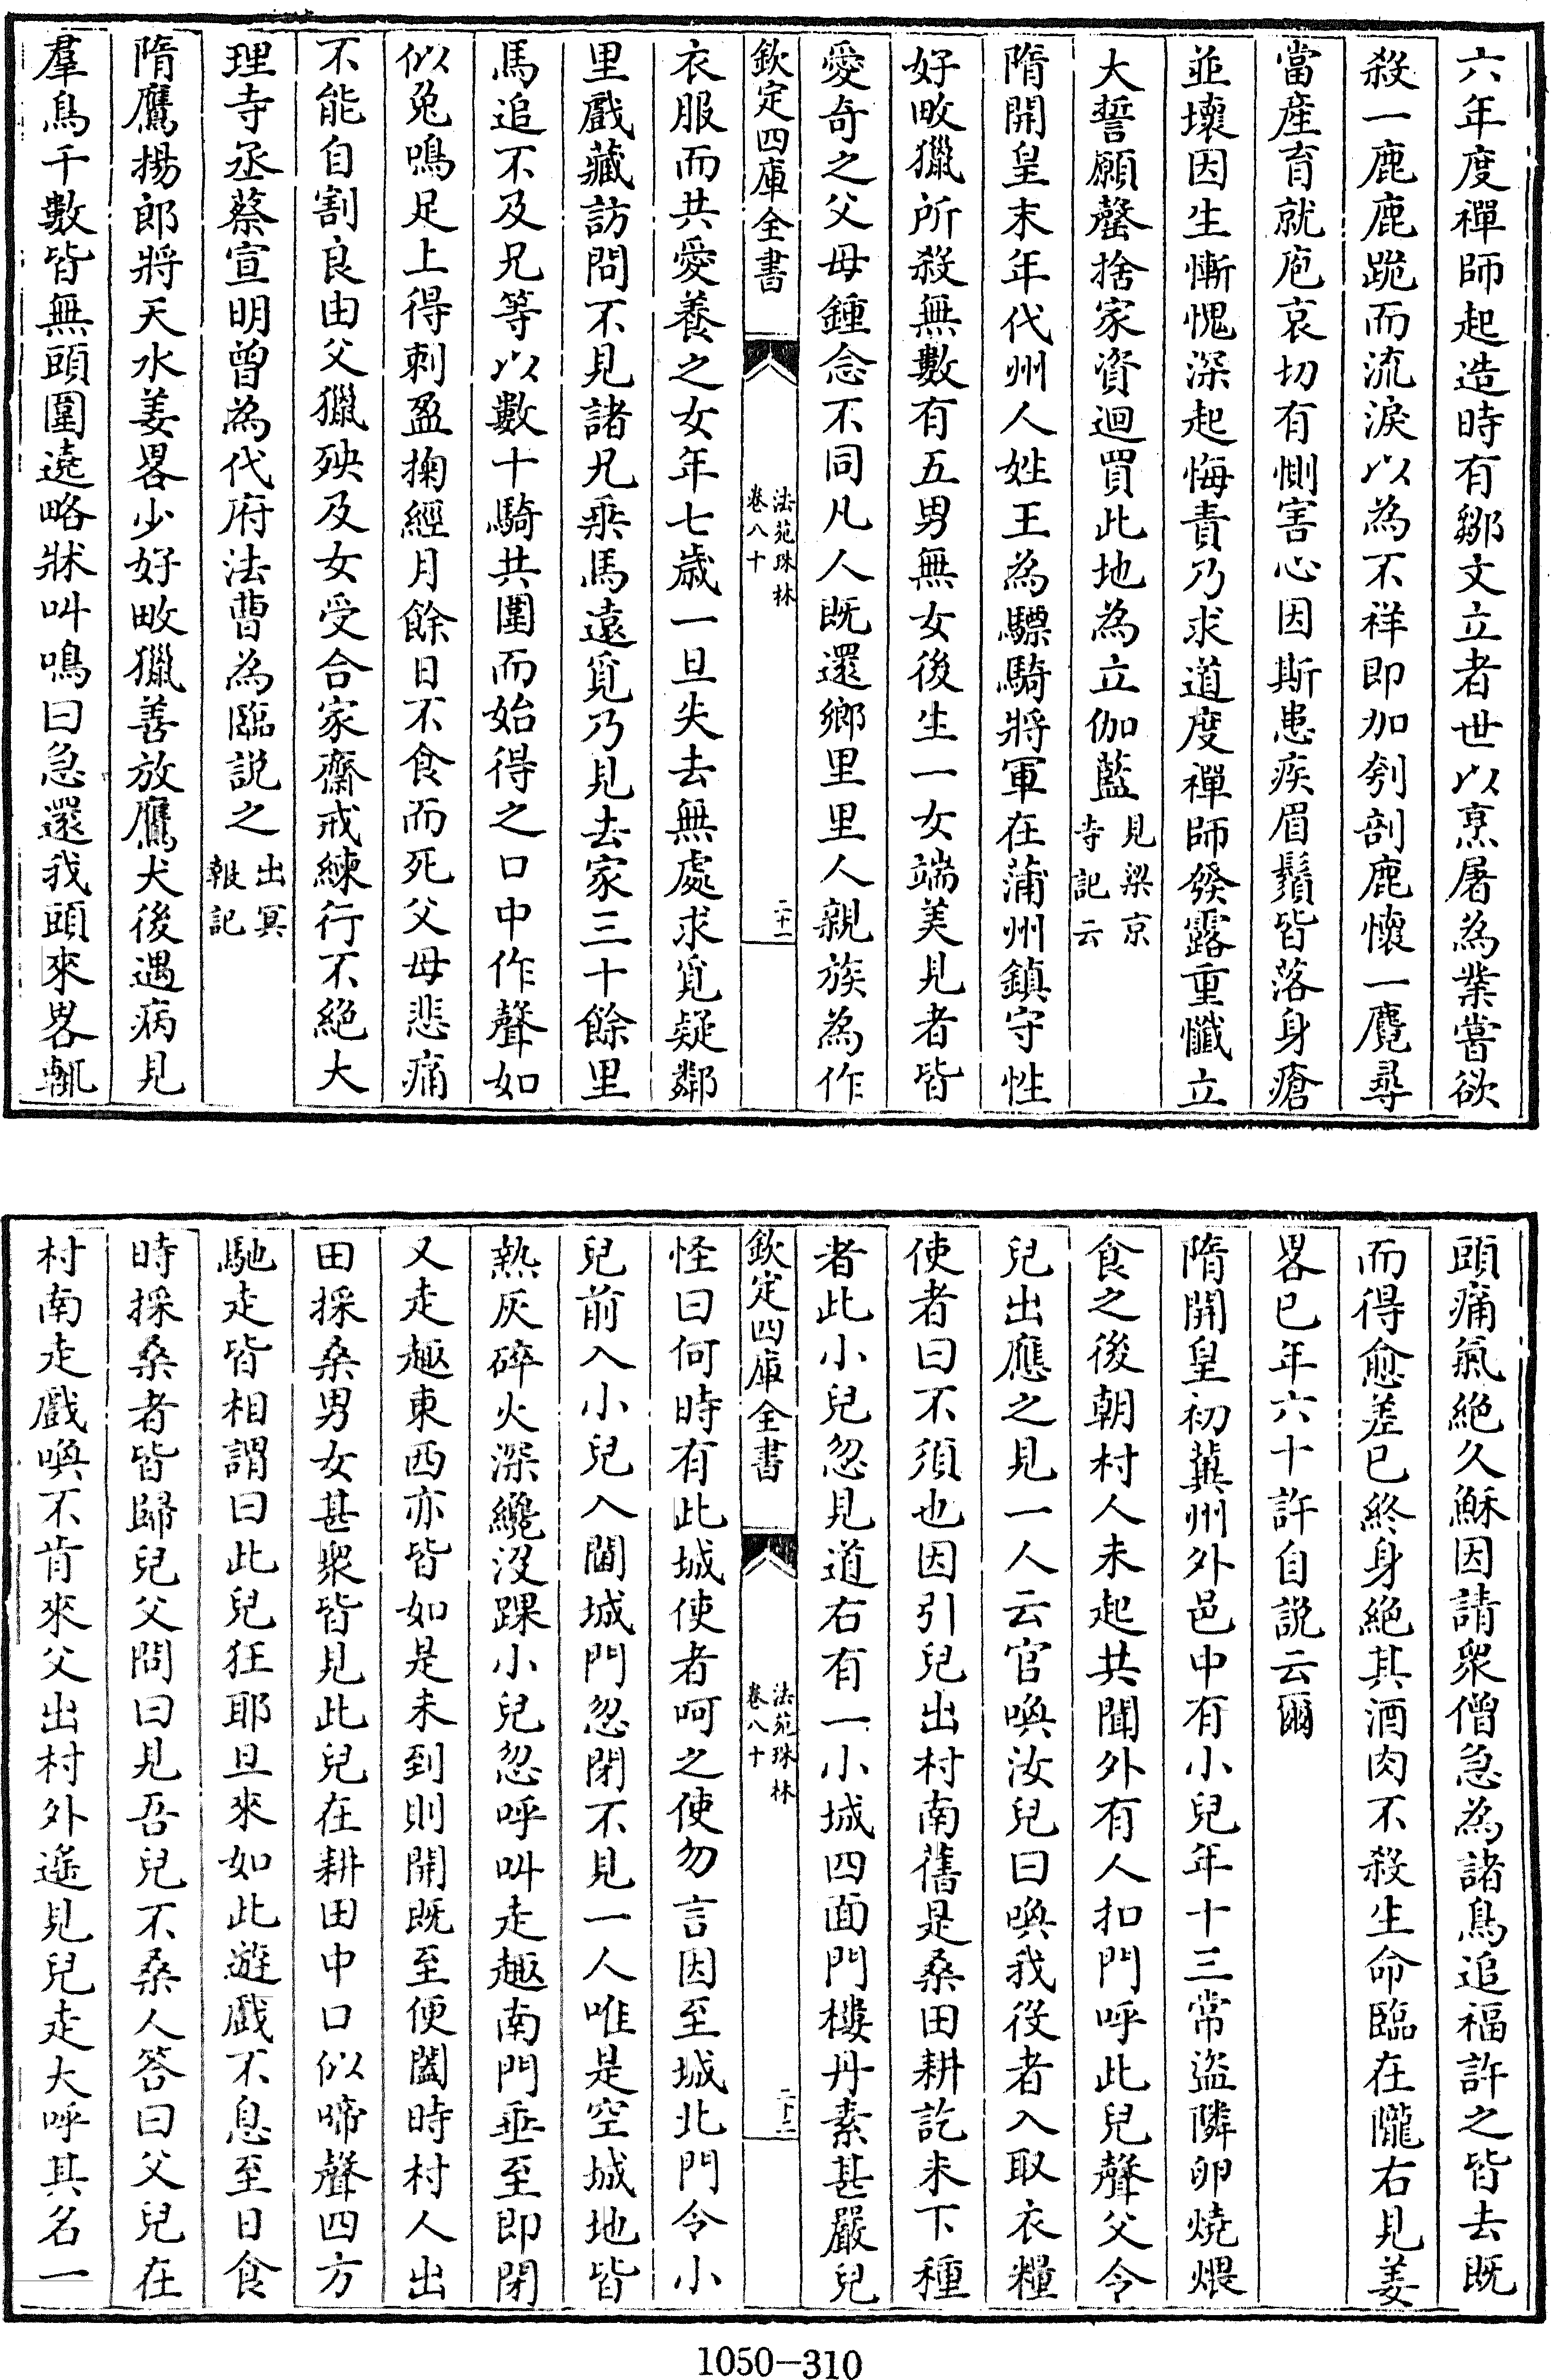 六年度禪師起造時有鄒文立者世以烹屠為業嘗欲
殺一鹿鹿跪而流淚以為不祥即加刳剖鹿懷一麑尋
當産育就庖哀切有惻害心因斯患疾眉鬚皆落身瘡
並壞因生慚愧深起悔責乃求道度禪師發露重懺立
大誓願罄捨家資迴買此地為立伽藍見梁京寺記云
隋開皇末年代州人姓王為驃騎將軍在蒲州鎮守性
好畋獵所殺無數有五男無女後生一女端美見者皆
愛奇之父母鍾念不同凡人既還鄉里里人親族為作
欽定四庫全書 法苑珠林 卷八十 二十一
衣服而共愛養之女年七歳一旦失去無處求覓疑鄰
里戲藏訪問不見諸兄乘馬遠覓乃見去家三十餘里
馬追不及兄等以數十騎共圍而始得之口中作聲如
似兔鳴足上得刺盈掬經月餘日不食而死父母悲痛
不能自割良由父獵殃及女受合家齋戒練行不絕大
理寺丞蔡宣明曾為代府法曹為臨説之出冥報記
隋鷹揚郎將天水姜畧少好畋獵善放鷹犬後遇病見
羣鳥千數皆無頭圍遶略牀叫鳴曰急還我頭來畧輒
頭痛氣絕久穌因請衆僧急為諸鳥追福許之皆去既
而得愈差已終身絕其酒肉不殺生命臨在隴右見姜
畧已年六十許自説云爾
隋開皇初冀州外邑中有小兒年十三常盜隣卵燒煨
食之後朝村人未起共聞外有人扣門呼此兒聲父令
兒出應之見一人云官喚汝兒曰喚我役者入取衣糧
使者曰不須也因引兒出村南舊是桑田耕訖未下種
者此小兒忽見道右有一小城四面門樓丹素甚嚴兒
欽定四庫全書 法苑珠林 卷八十 二十二
怪曰何時有此城使者呵之使勿言因至城北門令小
兒前入小兒入閫城門忽閉不見一人唯是空城地皆
熱灰碎火深纔沒踝小兒忽呼叫走趣南門垂至即閉
又走趣東西亦皆如是未到則開既至便闔時村人出
田採桑男女甚衆皆見此兒在耕田中口似啼聲四方
馳走皆相謂曰此兒狂耶旦來如此遊戲不息至日食
時採桑者皆歸兒父問曰見吾兒不桑人答曰父兒在
村南走戲喚不肯來父出村外遙見兒走大呼其名一
1050-310